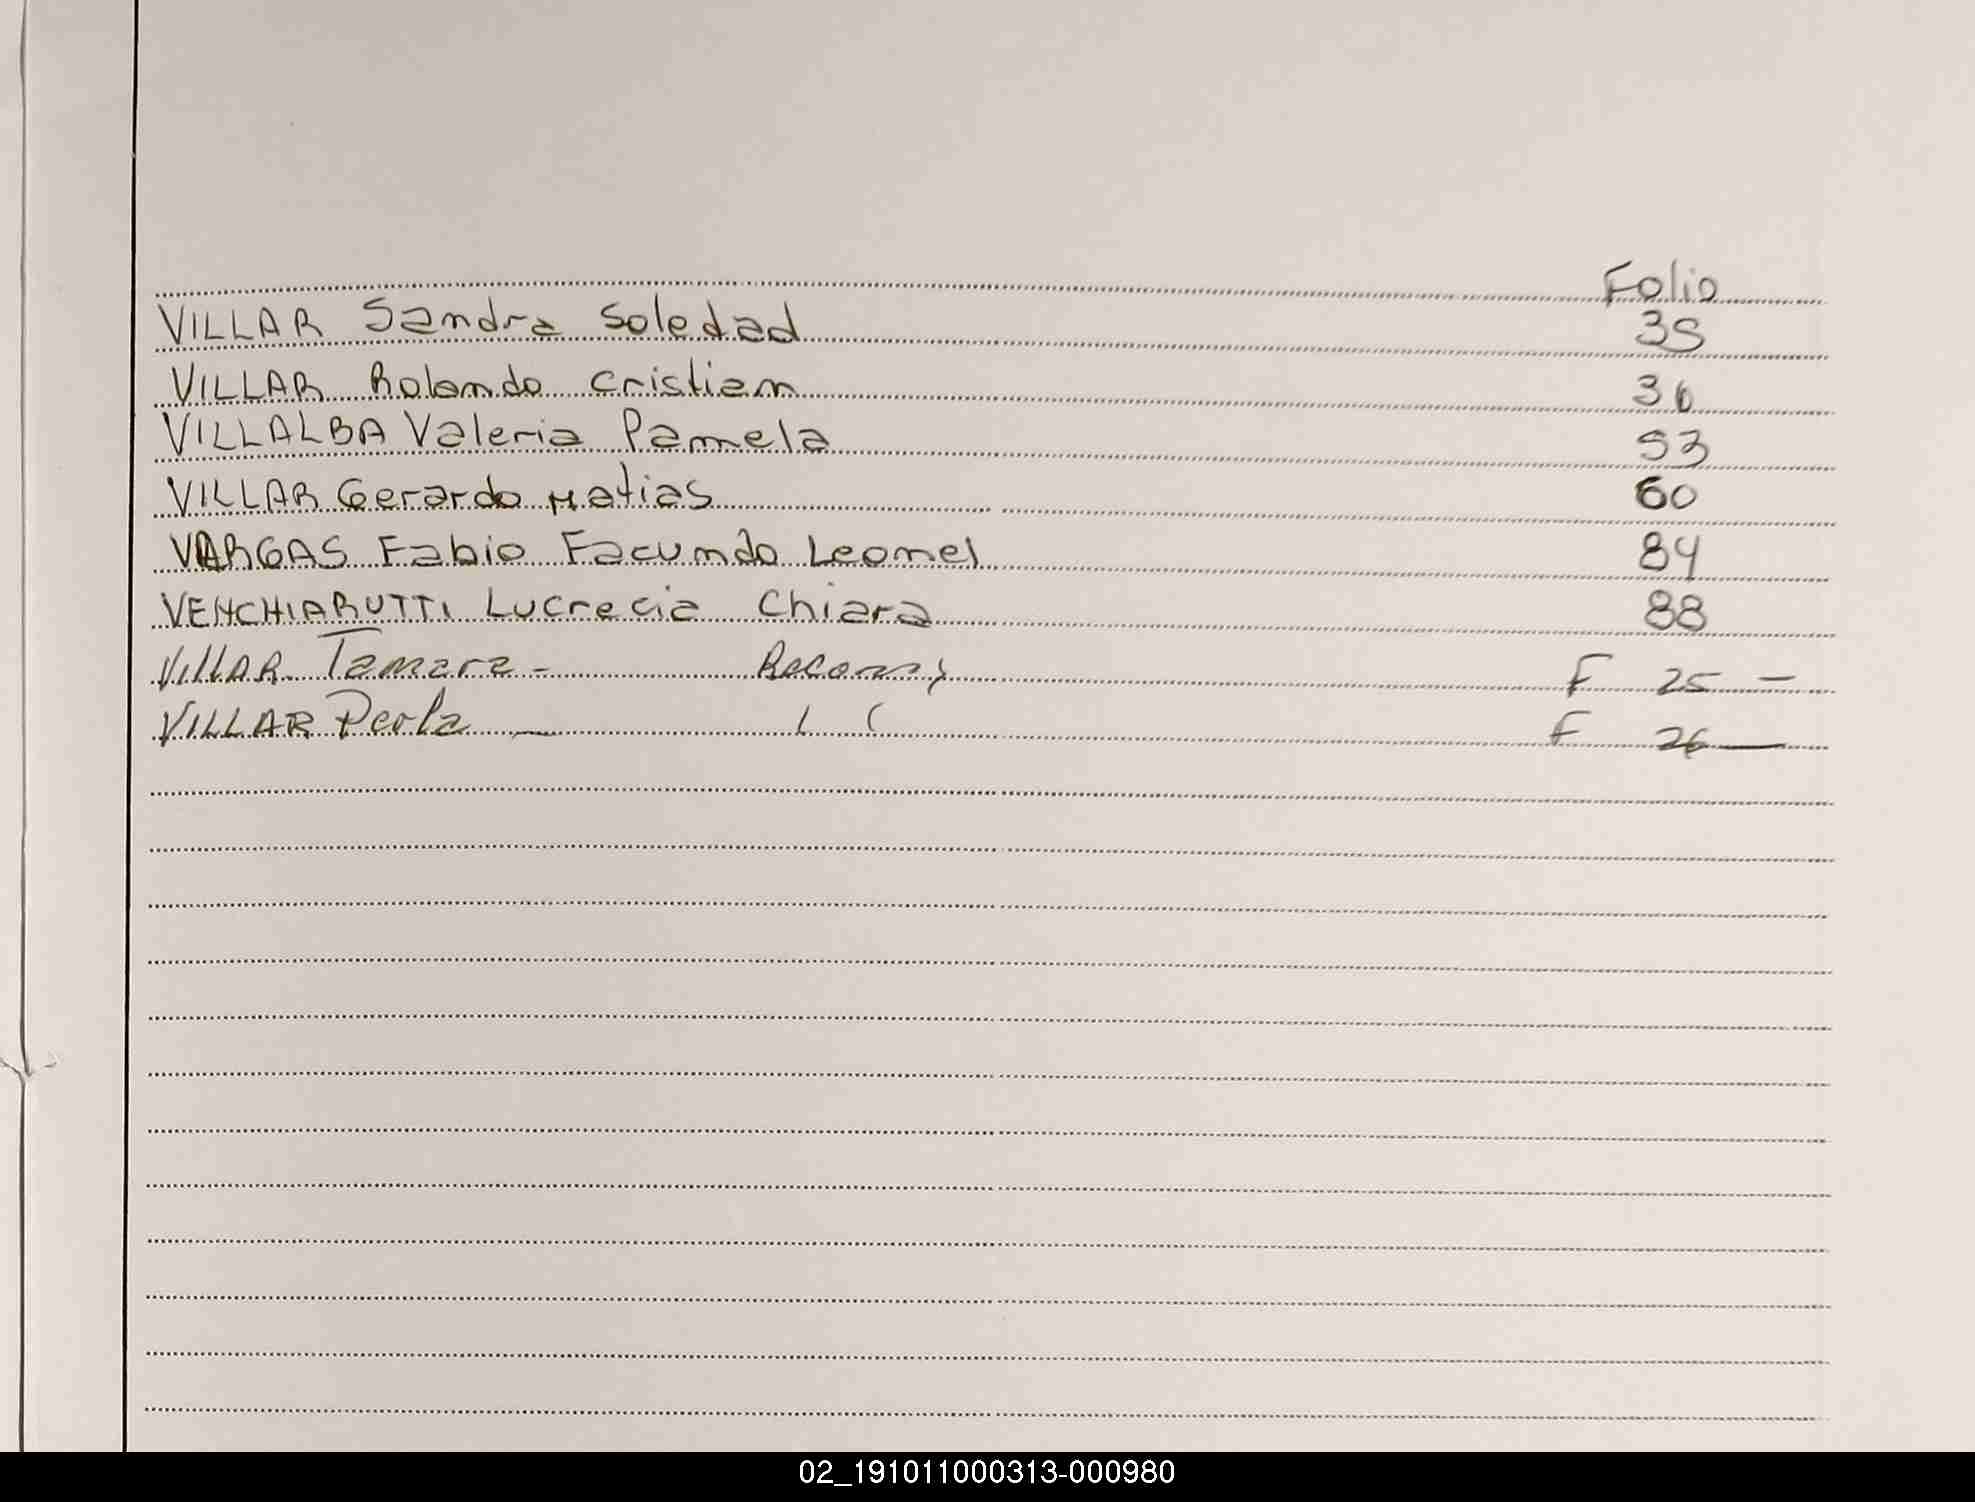 Folio
VILLAR Sandra Soledad 35
VILLAR Rolando Cristian 36
VILLALBA Valeria Pamela 53
VILLAR Gerardo Matias 60
VARGAS Fabio Facundo Leonel 84
VENCHIARUTTI Lucrecia Chiara 88
VILLAR Tamara - F 25 —
VILLAR Perla — F 26 —
02_191011000313-000980